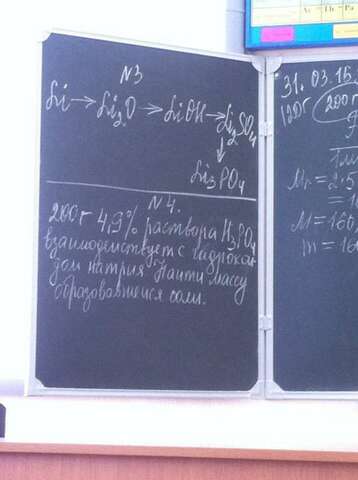 N3
Li → Li₂O → LiOH → Li₂SO₄
↓
Li₃PO₄
N4.
200г 4,9% раствора H₃PO₄
взаимодействует с гидрокси
дом натрия Найти массу
образовавшейся соли.
31.03.15
120г 200г
Mr = 2·5
M = 160
m = 16